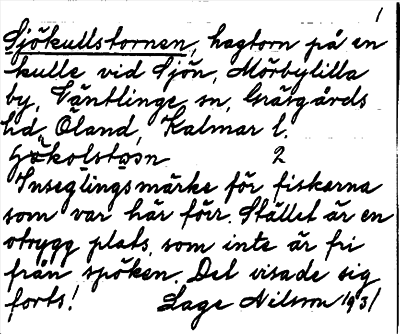 1
Sjökullstornen, hagtorn på en
kulle vid Sjön, Mörbylilla
by, Ventlinge sn, Gräsgårds
hd, Öland, Kalmar l.
2
Inseglingsmärke för fiskarna
som var här förr. Stället är en
otrygg plats, som inte är fri
från spöken. Det visade sig
forts! Lage Nilsson 1931